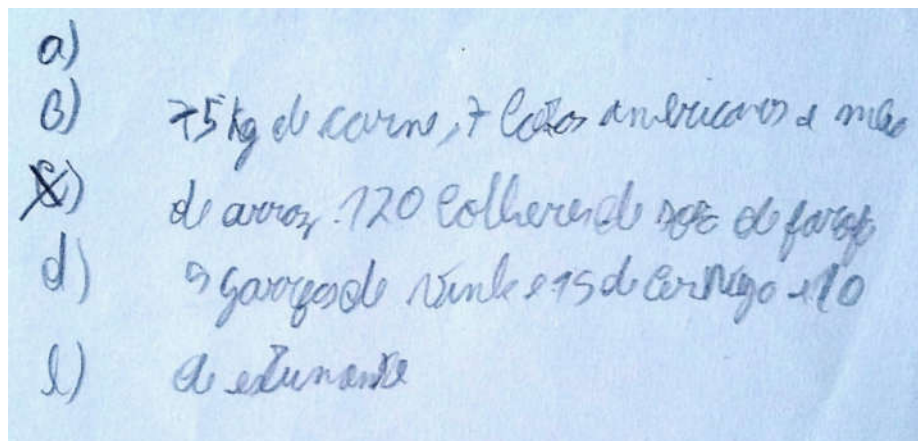 a)
b) 75 kg de carne, 7 copos americanos e meio
c) de arroz. 120 colheres de sopa de farofa
d) 5 garrafas de vinho e 15 de cerveja e 10
e) de espumante